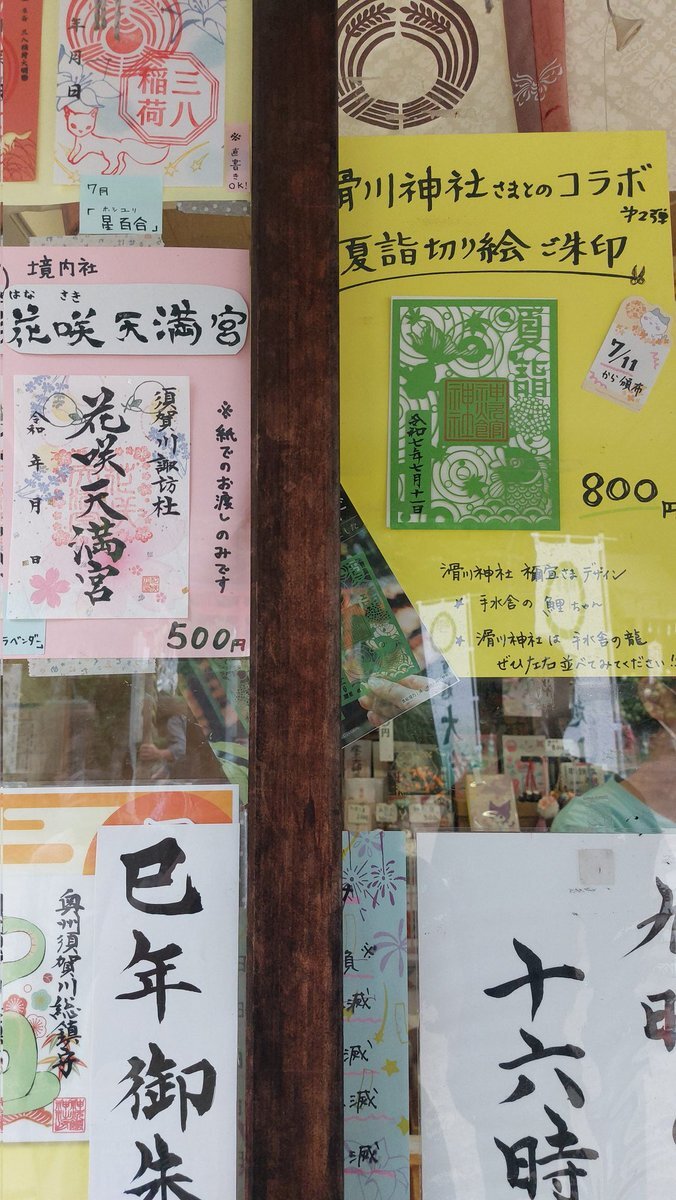 年 月 日
三八
稲荷
※直書き
OK!
7月
ホシユリ
「星百合」
境内社
はな さき
花咲天満宮
須賀川諏訪社
花咲天満宮
令和 年 月 日
※紙でのお渡しのみです
ラベンダー」
500円
滑川神社さまとのコラボ
第2弾
夏詣切り絵ご朱印
夏詣
令和七年七月十一日
7/11
から頒布
800円
滑川神社 禰宜さまデザイン
★ 手水舎の 鯉ちゃん
★ 滑川神社は 手水舎の龍
ぜひ左右並べてみてください!!
奥州須賀川総鎮守
巳年御朱
滅
滅
滅
滅
十六時
九時